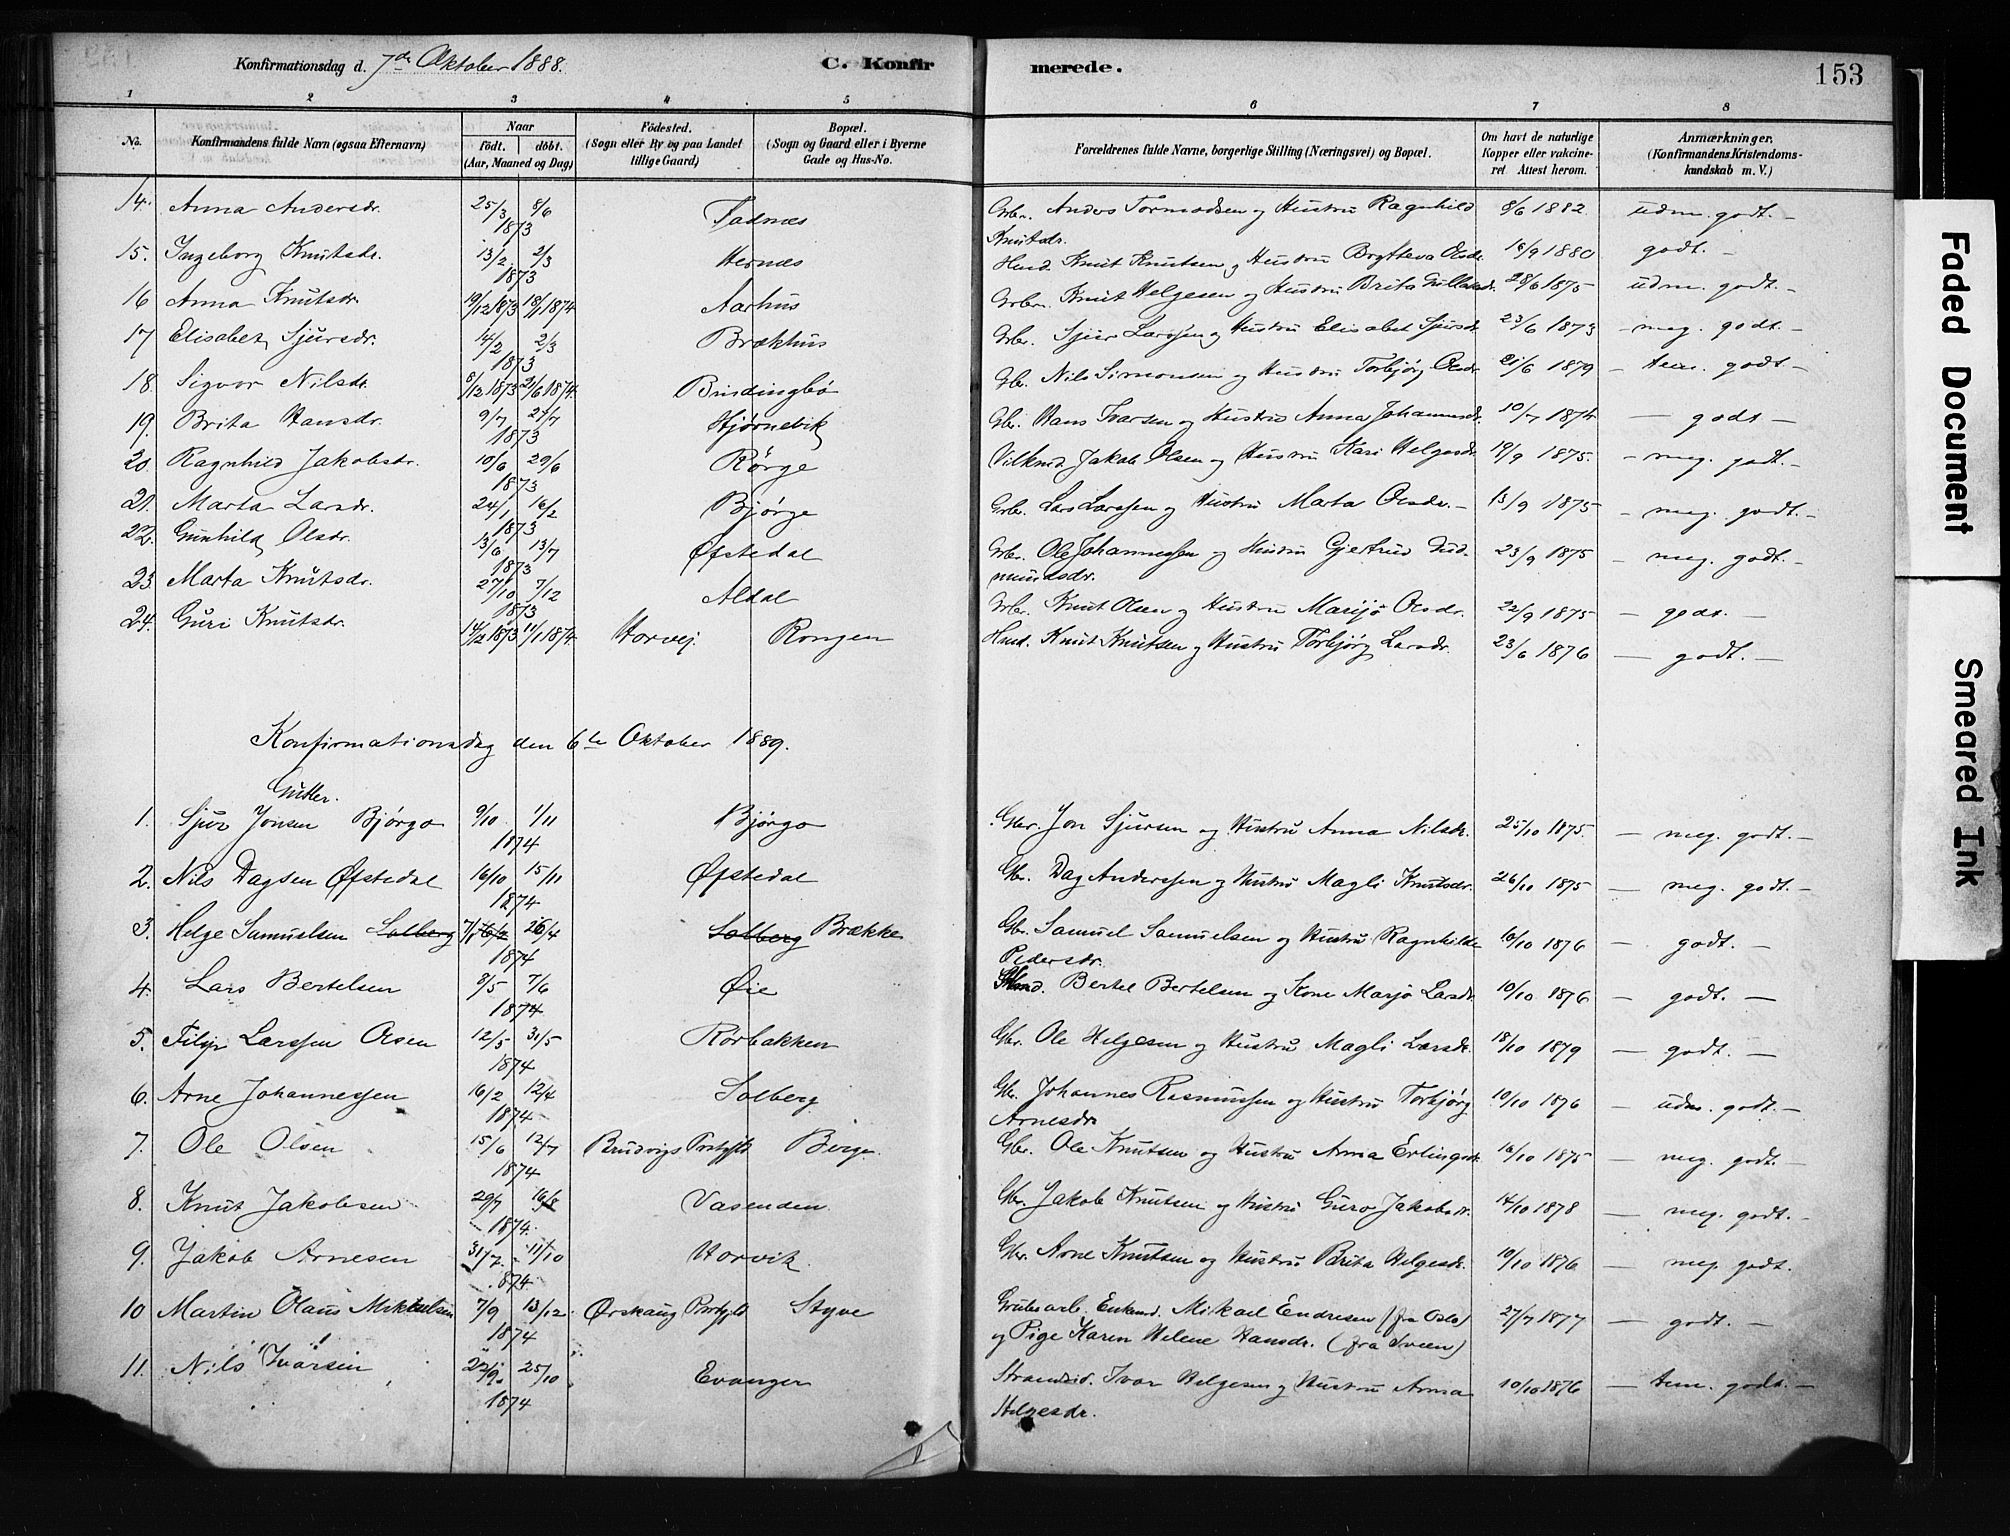 Konfirmationsdag d. 7de Oktober 1888.
C. Konfirmerede.
153
1 2 3 4 5 6 7 8
No. Konfirmandens fulde Navn (ogsaa Efternavn) Naar födt. döbt. (Aar, Maaned og Dag) Födested. (Sogn eller By og paa Landet tillige Gaard) Bopæl. (Sogn og Gaard eller i Byerne Gade og Hus-No. Forældrenes fulde Navne, borgerlige Stilling (Næringsvei) og Bopæl. Om havt de naturlige Kopper eller vakcineret Attest herom. Anmærkninger, (Konfirmandens Kristendomskundskab m. V.)
14. Anna Andersdr. 25/3 8/6 1873 Fadnæs Grbr. Anders Tormodsen og Hustru Ragnhild Knutsdr. 8/6 1882 udm. godt. -
15. Ingeborg Knutsdr. 13/2 2/3 1873 Hernæs Husmd. Knut Knutsen og Hustru Brytteva Olsdr. 16/9 1880 godt. -
16 Anna Knutsdr. 19/12 1873 18/1 1874 Aarhus Grbr. Knut Helgesen og Hustru Brita Gullaksdr. 28/6 1875 udm. godt. -
17 Elisabet Sjursdr. 14/2 2/3 1873 Brækhus Gbr. Sjur Larssen og Hustru Elisabet Sjursdr. 23/6 1873 - meg. godt. -
18. Sigvor Nilsdr. 8/12 1873 21/6 1874. Bindingbø Gbr. Nils Simonsen og Hustru Torbjørg Olsdr. 21/6 1879 - tem. godt. -
19. Brita Hansdr. 9/7 27/7 1873 Hjørnevik Gbr. Hans Ivarsen og Hustru Anna Johannesdr. 10/7 1874 - godt -
20. Ragnhild Jakobsdr. 10/6 29/6 1873 Rørge Vilkmd. Jakob Olsen og Hustru Kari Helgesdr. 19/9 1875. - meg. godt. -
21. Marta Larsdr. 24/1 16/2 1873 Bjørge Grbr. Lars Larssen og Hustru Marta Olsdr. - 13/9 1875 - meg. godt. -
22. Gunhild Olsdr. 13/6 13/7 1873 Øfstedal Grbr. Ole Johannessen og Hustru Gjertrud Gudmundsdr. 23/9 1875 - meg. godt. -
23. Marta Knutsdr. 27/10 7/12 1873 Aldal Grbr. Knut Olsen og Hustru Marjø Olsdr. 22/9 1875 - godt. -
24. Guri Knutsdr. 14/2 1873 11/1 1874. Horvej. Rongen Husmd. Knut Knutsen og Hustru Torbjørg Larsdr. 23/6 1876 - godt. -
Konfirmationsdag den 6te Oktober 1889.
Gutter.
1. Sjur Jonsen Bjørgo 9/10 1/11 1874 Bjørgo Gbr. Jon Sjursen og Hustru Anna Nilsdr. 25/10 1875. - meg. godt. -
2. Nils Dagsen Øfstedal 16/10 15/11 1874 Øfstedal Gbr. Dag Anderssen og Hustru Magli Knutsdr. 26/10 1875 - meg. godt. -
3. Helge Samuelsen Solberg 26/4 1874 Solberg Brække Gbr. Samuel Samuelsen og Hustru Ragnhilde Pedersdr. 10/10 1876 - godt. -
4. Lars Bertelsen 8/5 7/6 1874 Øie Bertel Bertelsen og Kone Marjo Larsdr. 10/10 1876 - godt. -
5. Filip Larssen Olsen 12/5 31/5 1874 Rørbakken Gbr. Ole Helgesen og Hustru Magli Larsdr. 18/10 1879 - godt. -
6. Arne Johannessen 16/2 12/4 1874 Solberg Gbr. Johannes Rasmussen og Hustru Torbjørg Arnesdr. 10/10 1876 - udm. godt. -
7. Ole Olsen 15/6 12/7 1874 Bruvigs Prstgjld Berge. Gbr. Ole Knutsen og Hustru Anna Erlingsdr. 16/10 1875 - meg. godt. -
8. Knut Jakobsen 29/7 16/8 1874. Vasenden. Gbr. Jakob Knutsen og Hustru Guro Jakobsdr. 14/10 1878 - meg. godt. -
9. Jakob Arnesen 31/7. 11/10 1874. Horvik. Gbr. Arne Knutsen og Hustru Brita Helgesdr. 10/10 1876 - meg. godt.
10 Martin Olaus Mikkelsen 7/9 13/12. 1874 Ørskaug Prstgjld Styve Grubearb. Enkmd. Mikael Endresen (fra Oslo) og Pige Karen Helene Hansdr. (fra Sveen) 27/7 1877 - godt. -
11. Nils Ivarsen 22/9. 25/10 1874 Evanger Strandsid. Ivar Helgesen og Hustru Anna Helgesdr. 10/10 1876 - tem. godt. -
Faded Document
Smeared Ink